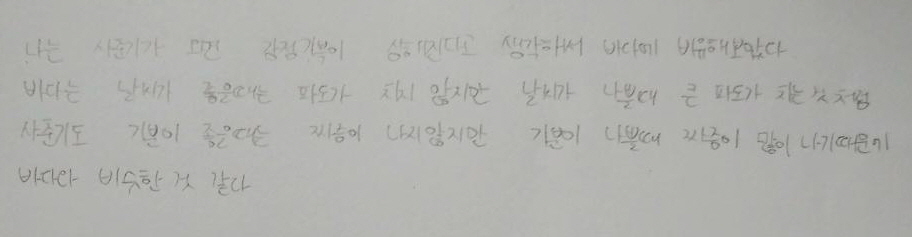 나는 사춘기가 되면 감정기복이 심해진다고 생각하서 바다에 비유해보았다
바다는 날씨가 좋을때는 파도가 치지 않지만 날씨가 나쁠때 큰 파도가 치는것 처럼
사춘기도 기분이 좋을때는 짜증이 나지않지만 기분이 나쁠때 짜증이 많이 나기때문에
바다랑 비슷한 것 같다